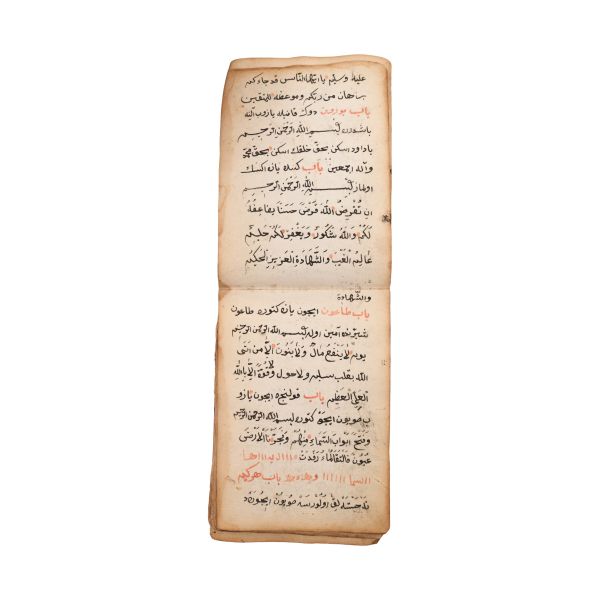 عليه وسلم يا ايها الناس قد جاءكم
برهان من ربكم وموعظة للمتقين
باب
باشندن بسم الله الرحمن الرحيم
يا داود اسكن بحق خلقك اسكن بحق محمد
واله اجمعين باب كمنه يازه
اولماز بسم الله الرحمن الرحيم
ان تقرض الله قرضا حسنا يضاعفه
لكم والله شكور ويغفر لكم حليم
عالم الغيب والشهادة العزيز الحكيم
والشهادة
باب طاعون ايچون يازه كتوره طاعون
شرندن امين اوله بسم الله الرحمن الرحيم
يوم لا ينفع مال ولا بنون الا من اتى
الله بقلب سليم ولا حول ولا قوة الا بالله
العلى العظيم باب قولنجه ايچون يازو
ب صويون ايچه كتوره بسم الله الرحمن الرحيم
وفتح ابواب السماء منهم وفجرنا الارض
عيون فالتقا الماء
باب هر كيم
صويون ايچوره